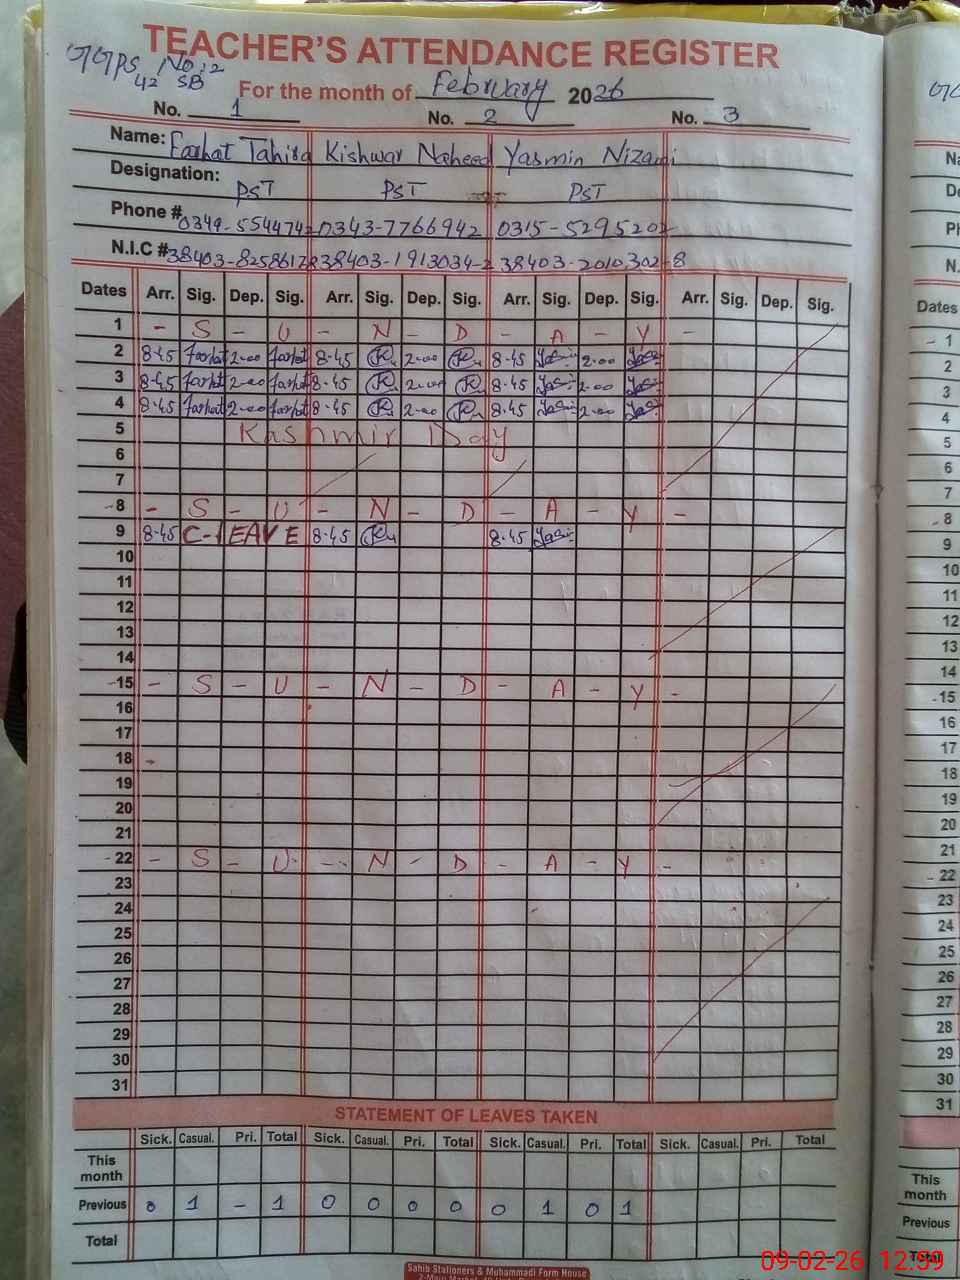 TEACHER'S ATTENDANCE REGISTER
GGPS No:2
42 SB
For the month of February 2026
No. 1 No. 2 No. 3
Name: Farhat Tahira Kishwar Naheed Yasmin Nizami
Designation: PST PST PST
Phone # 0349-5544742 0343-7766942 0315-5295202
N.I.C # 38403-8258617-8 38403-1913034-2 38403-2010302-8
Dates Arr. Sig. Dep. Sig. Arr. Sig. Dep. Sig. Arr. Sig. Dep. Sig. Arr. Sig. Dep. Sig.
1 - S - U - N - D - A - Y -
2 8-45 Farhat 2-00 Farhat 8-45 2-00 8-45 Yasmin 2-00 Yasmin
3 8-45 Farhat 2-00 Farhat 8-45 2-00 8-45 Yasmin 2-00 Yasmin
4 8-45 Farhat 2-00 Farhat 8-45 2-00 8-45 Yasmin 2-00 Yasmin
5 Kashmir Day
6
7
8 - S - U - N - D - A - Y -
9 8-45 C-LEAVE 8-45 8-45 Yasmin
10
11
12
13
14
15 - S - U - N - D - A - Y -
16
17
18
19
20
21
22 - S - U - N - D - A - Y -
23
24
25
26
27
28
29
30
31
STATEMENT OF LEAVES TAKEN
Sick. Casual. Pri. Total Sick. Casual. Pri. Total Sick. Casual. Pri. Total Sick. Casual. Pri. Total
This month
Previous 0 1 - 1 0 0 0 0 0 1 0 1
Total
Sahib Stationers & Muhammadi Form House
Dates
1
2
3
4
5
6
7
8
9
10
11
12
13
14
15
16
17
18
19
20
21
22
23
24
25
26
27
28
29
30
31
This month
Previous
Total
09-02-26 12:59